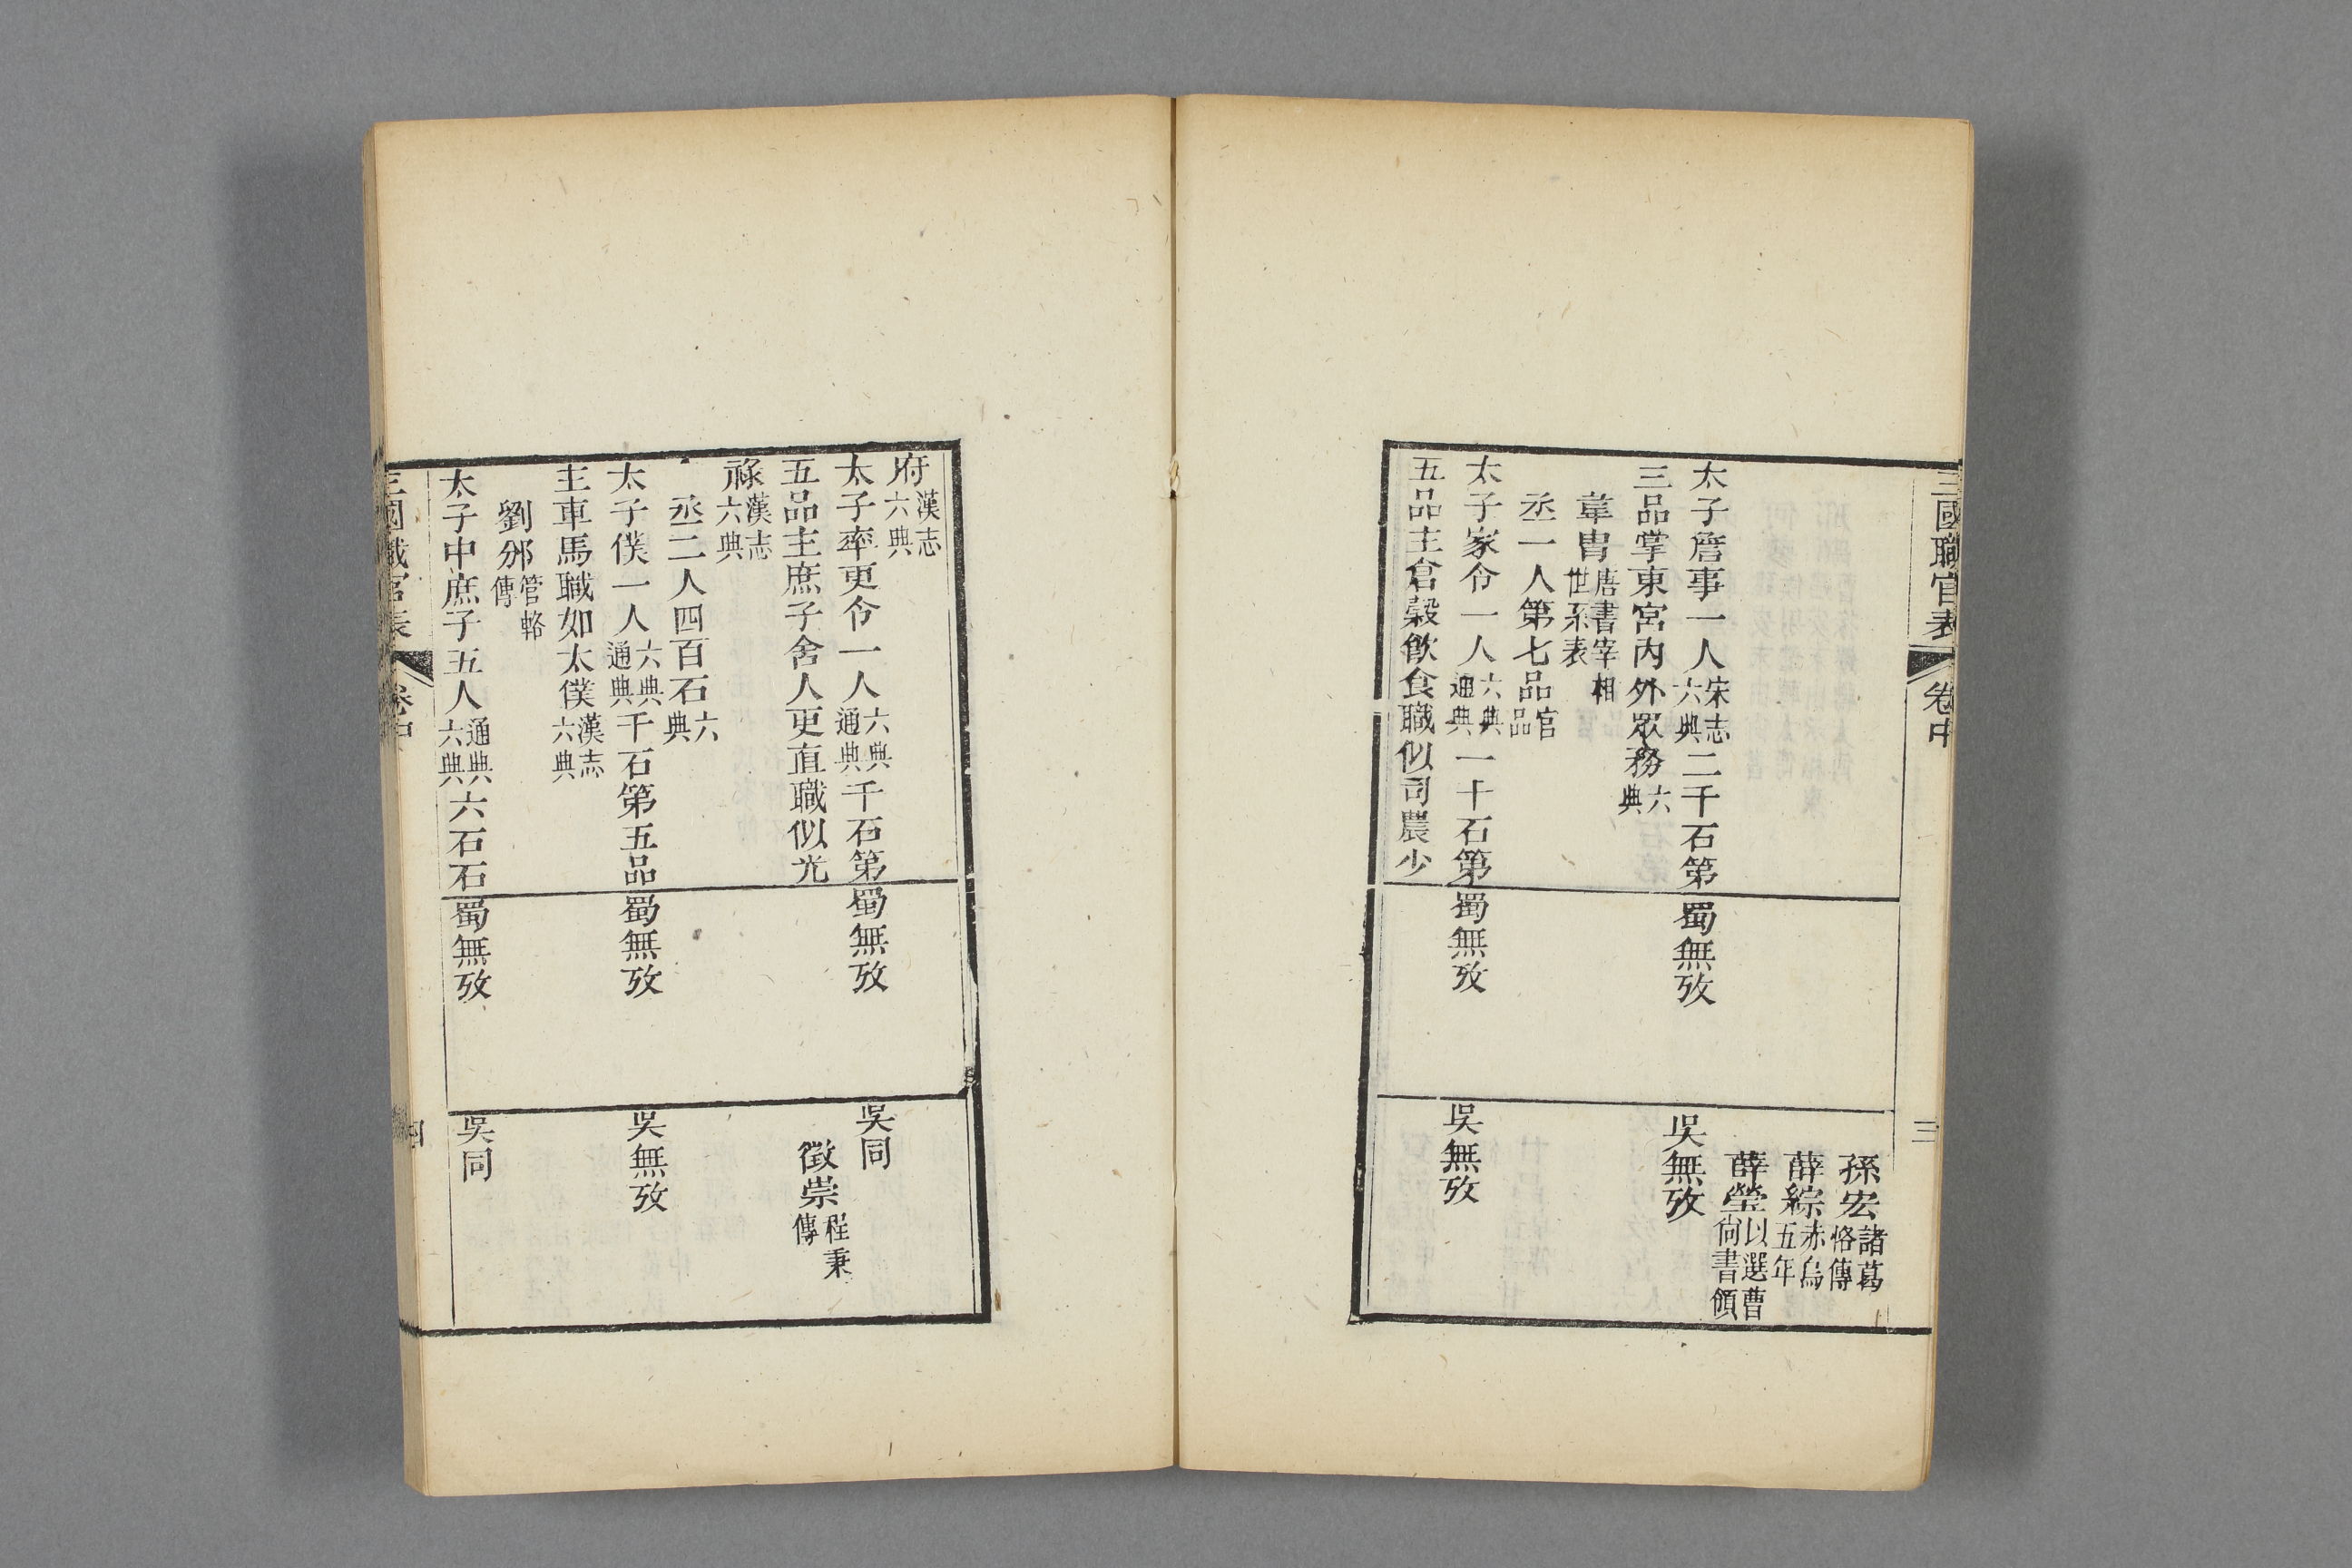 三國職官表 卷中 三
孫宏諸葛恪傳
薛綜赤烏五年
薛瑩以選曹尚書領
太子詹事一人宋志六典二千石第
三品掌東宮內外眾務六典
韋胄唐書宰相世系表
丞一人第七品官品
太子家令一人六典通典一十石第
五品主倉穀飲食職似司農少
蜀無攷
蜀無攷
吳無攷
吳無攷
府漢志六典
太子率更令一人六典通典千石第
五品主庶子舍人更直職似光
祿漢志六典
丞二人四百石六典
太子僕一人六典通典千石第五品
主車馬職如太僕漢志六典
劉邠管輅傳
太子中庶子五人通典六典六石石
蜀無攷
蜀無攷
蜀無攷
吳同
徵崇程秉傳
吳無攷
吳同
三國職官表 卷中 四